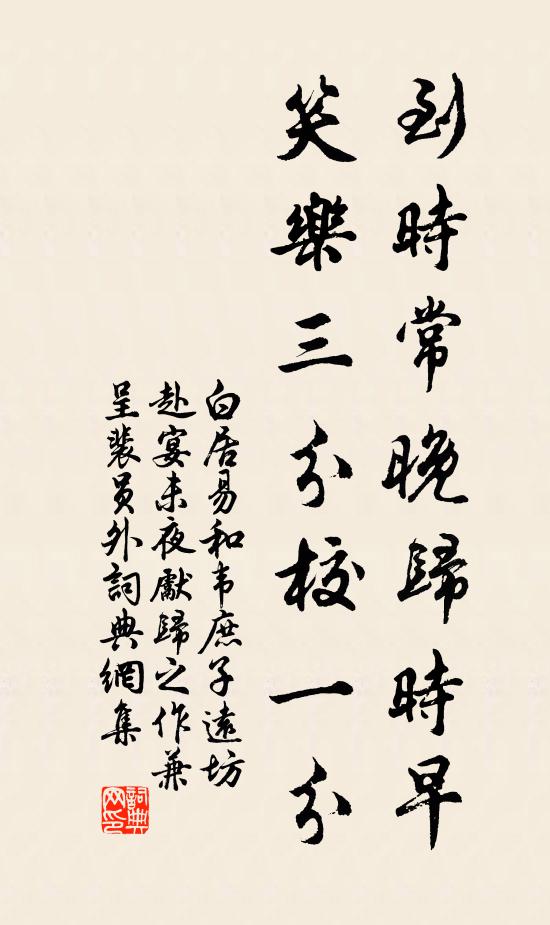 到時常晚歸時早
笑樂三分校一分
白居易和韦庶子遠坊
赴宴未夜獻歸之作兼
呈裴員外詞典網集
詞典
网印